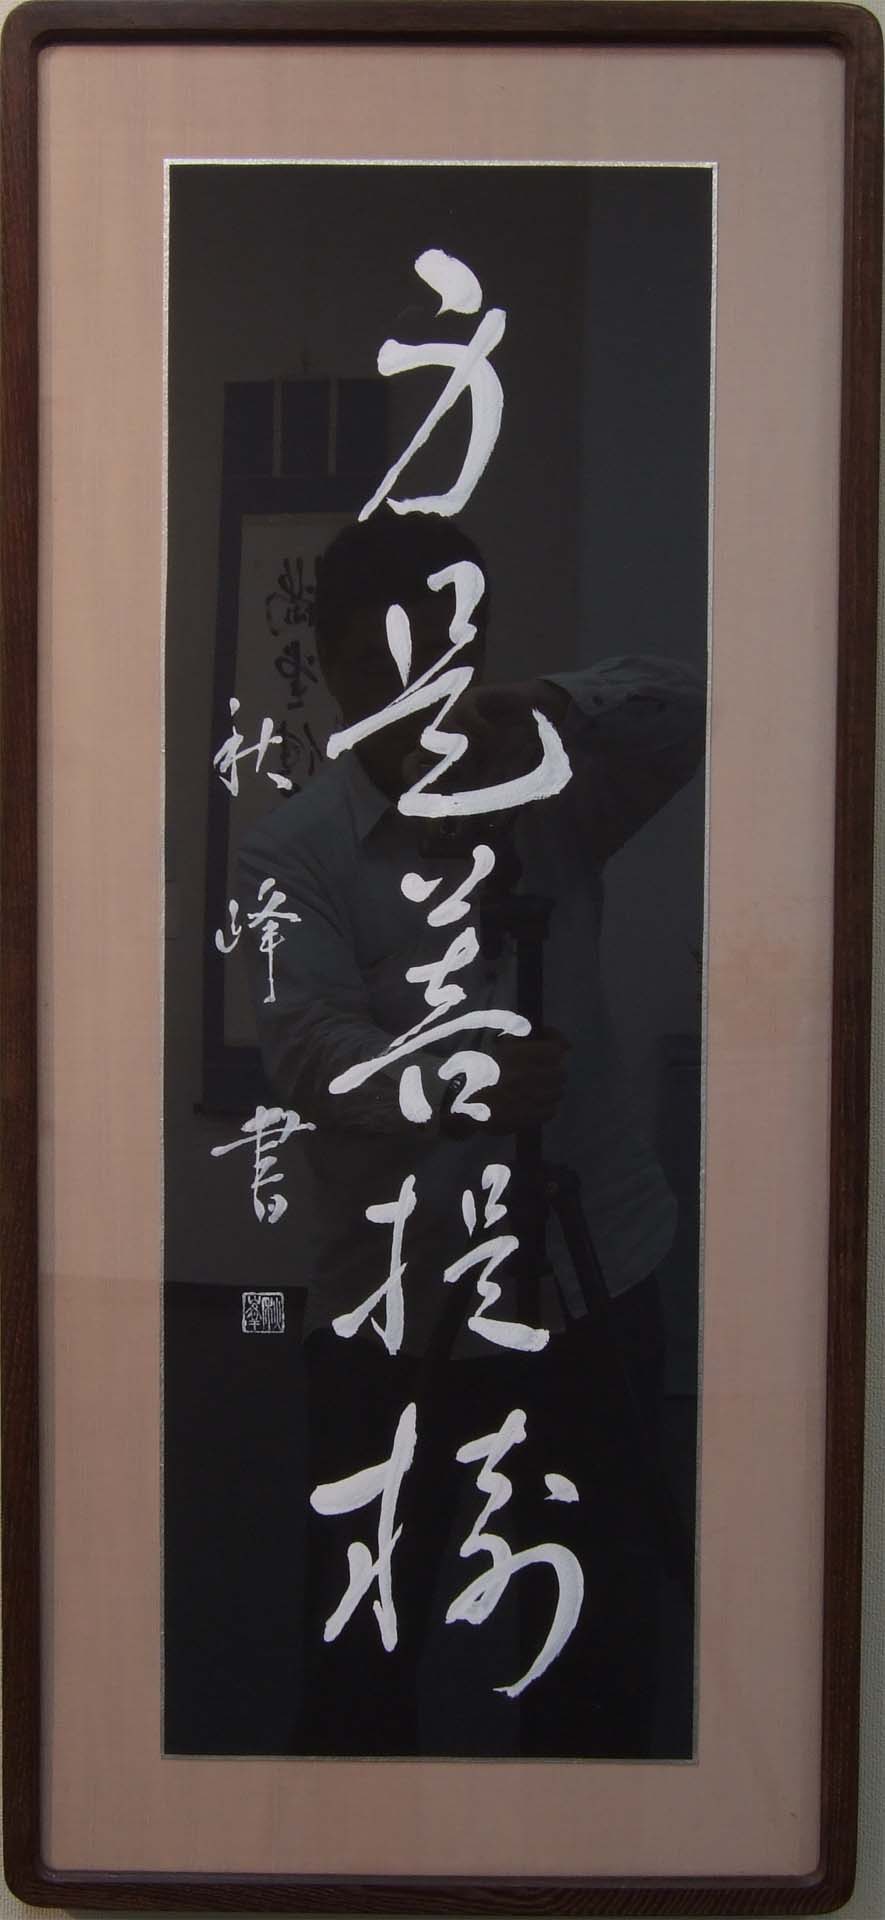 方是菩提樹
秋峰書